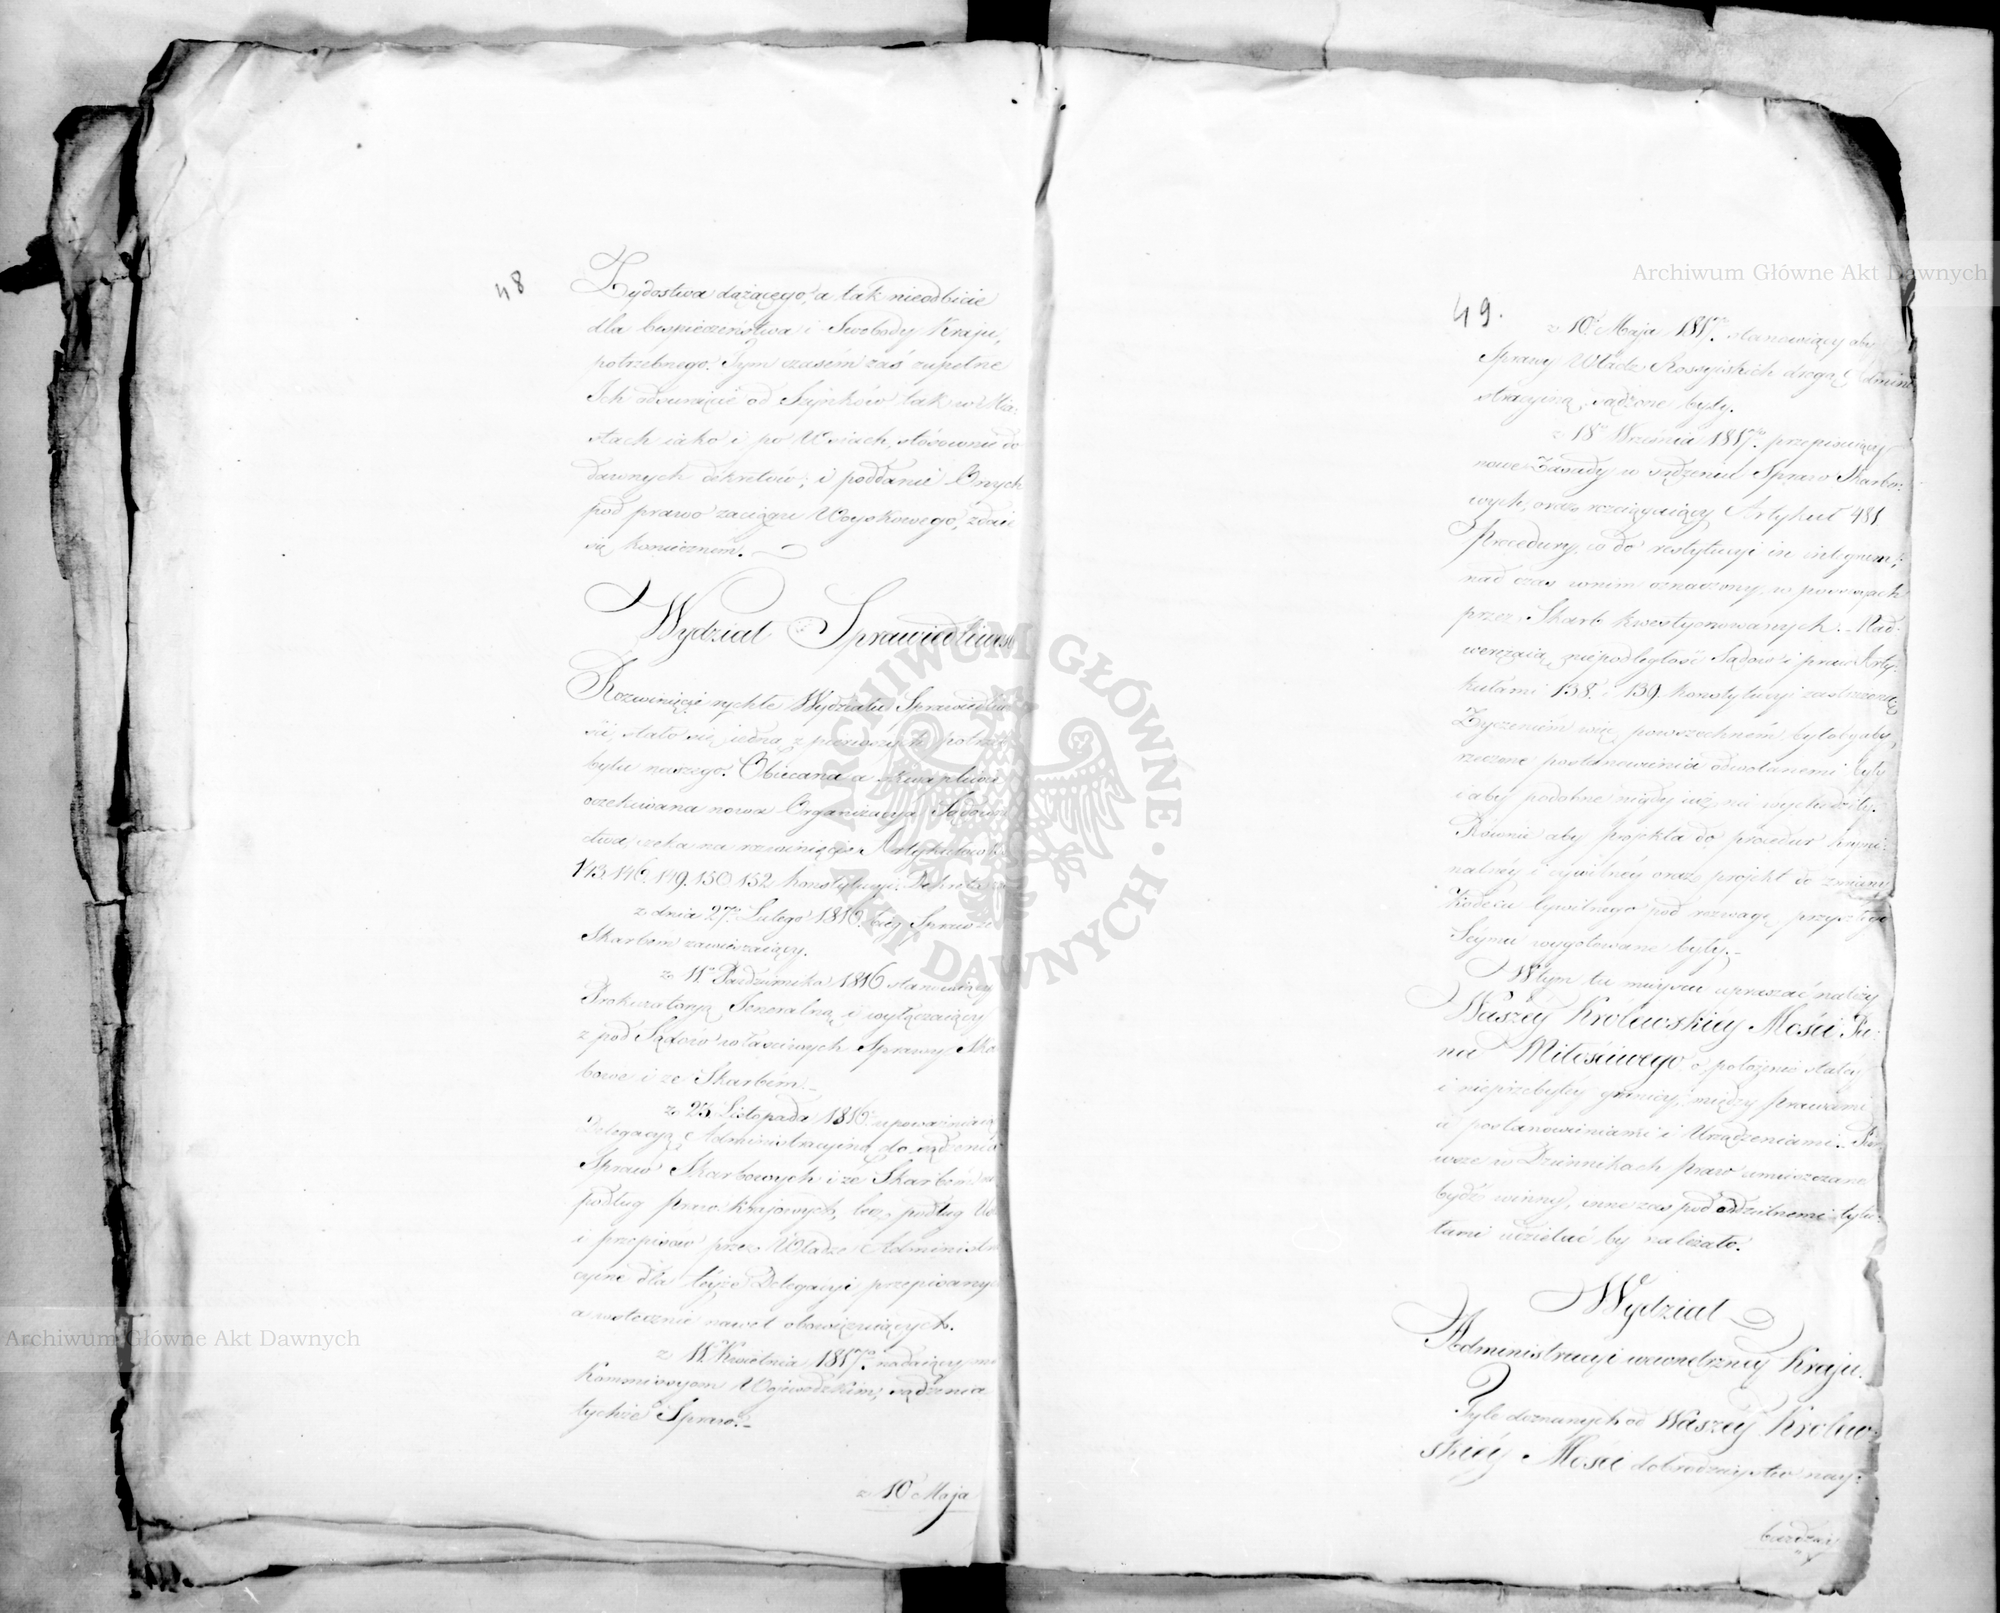 48
Żydostwa dążącego, a tak nieodbicie
dla bespieczeństwa i Swobody Kraju,
potrzebnego. Tym czasem zaś zupełne
Ich odsunięcie od Szynków tak w Mia-
stach iako i po Wsiach, stósownie do
dawnych dekretów, i poddanie Onych
pod prawo zaciągu Woyskowego, zdaie
się koniecznem.
Wydział Sprawiedliwoś
Rozwinięcie rychłe Wydziału Sprawiedliwo
ści, stało się iedną z pierwszych potrzeb
bytu naszego. Obiecana a skwapliwie
oczekiwana nowa Organizacya Sądowni
ctwa czeka na rozwinięcie Artykułów
143. 146. 149. 150 152 Konstytucyi. Dekreta
z dnia 27o Lutego 1816. bieg Spraw ze
Skarbem zawieszaiący.
z 11o Października 1816 stanowiący
Prokuratoryą Jeneralną i wyłączaiący
z pod Sądów właściwych Sprawy Ska
bowe i ze Skarbem.
z 25 Listopada 1816. upoważniaią
Delegacyą Administracyiną do sądzenia
Spraw Skarbowych i ze Skarbem nie
podług praw Krajowych, lecz podług
i przepisów przez Władze Administra
cyine dla teyże Delegacyi przepisanych
a wstecznie nawet obowiązuiących.
z 11 Kwietnia 1817o nadaiący
Kommissyom Wojewódzkim, sądzenia
tychże Spraw.
z 10 Maja
49.
z 10o Maja 1817o stanowiący aby
Sprawy Władz Rossyiskich drogą Admini
stracyiną, sądzone były.
z 18o Września 1817o przepisuiący
nowe Zasady w sądzeniu Spraw Skarbo-
wych, oraz rozciągaiący Artykuł 481
Procedury, co do restytucyi in integrum,
nad czas w nim oznaczony, w powodach
przez Skarb kwestyonowanych. Nad-
weręzaią niepodległość Sądów i praw Arty-
kułami 138. i 139. Konstytucyi zastrzeżoną
Życzeniem więc powszechném byłoby aby
rzeczone postanowienia odwołanemi były
i aby podobne nigdy iuż nie wychodziły.
Równie aby projekta do procedur krymi-
nalnéy i cywilnéy oraz projekt do zmiany
Kodexu Cywilnego pod rozwagę przyszłego
Seymu wygotowane były.
W tym tu mieyscu upraszać należy
Waszéy Królewskiéy Mości Pa-
na Miłościwego, o położenie stałéy
i nieprzebytéy granicy, między prawami
a postanowieniami i Urządzeniami. Pier-
wsze w Dziennikach praw umieszczane
bydź winny, inne zaś pod oddzielnemi tytu-
łami udzielać by należało.
Wydział
Administracyi wewnętrznéy Kraju.
Tyle doznanych od Waszéy Królew-
skiéy Mości dobrodzieystw nay-
bardziéy
ARCHIWUM GŁÓWNE AKT DAWNYCH
Archiwum Główne Akt Dawnych
Archiwum Główne Akt Dawnych